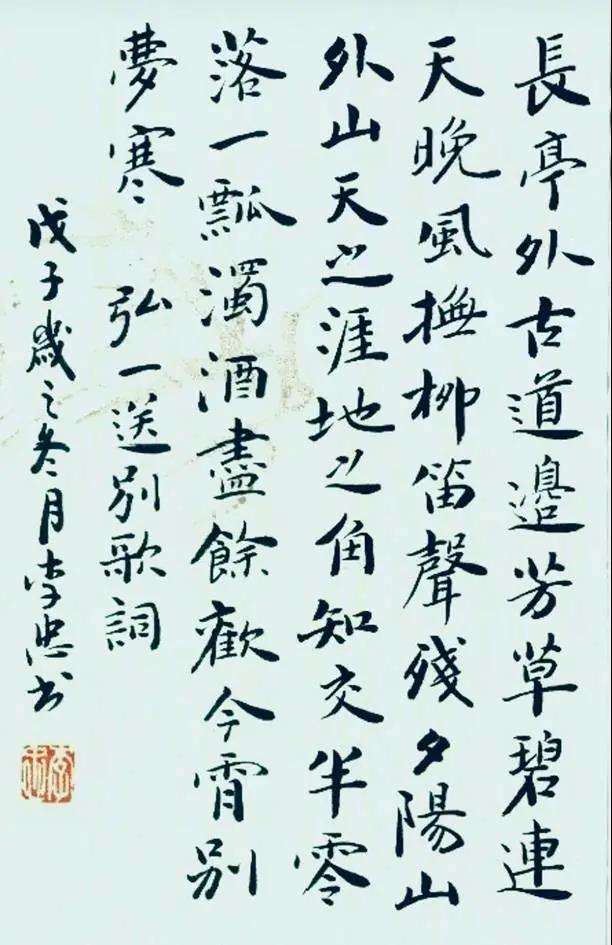 長亭外古道邊芳草碧連
天晚風撫柳笛聲殘夕陽山
外山天之涯地之角知交半零
落一瓢濁酒盡餘歡今霄別
夢寒 弘一送別歌詞
戊子歲之冬月李忠书